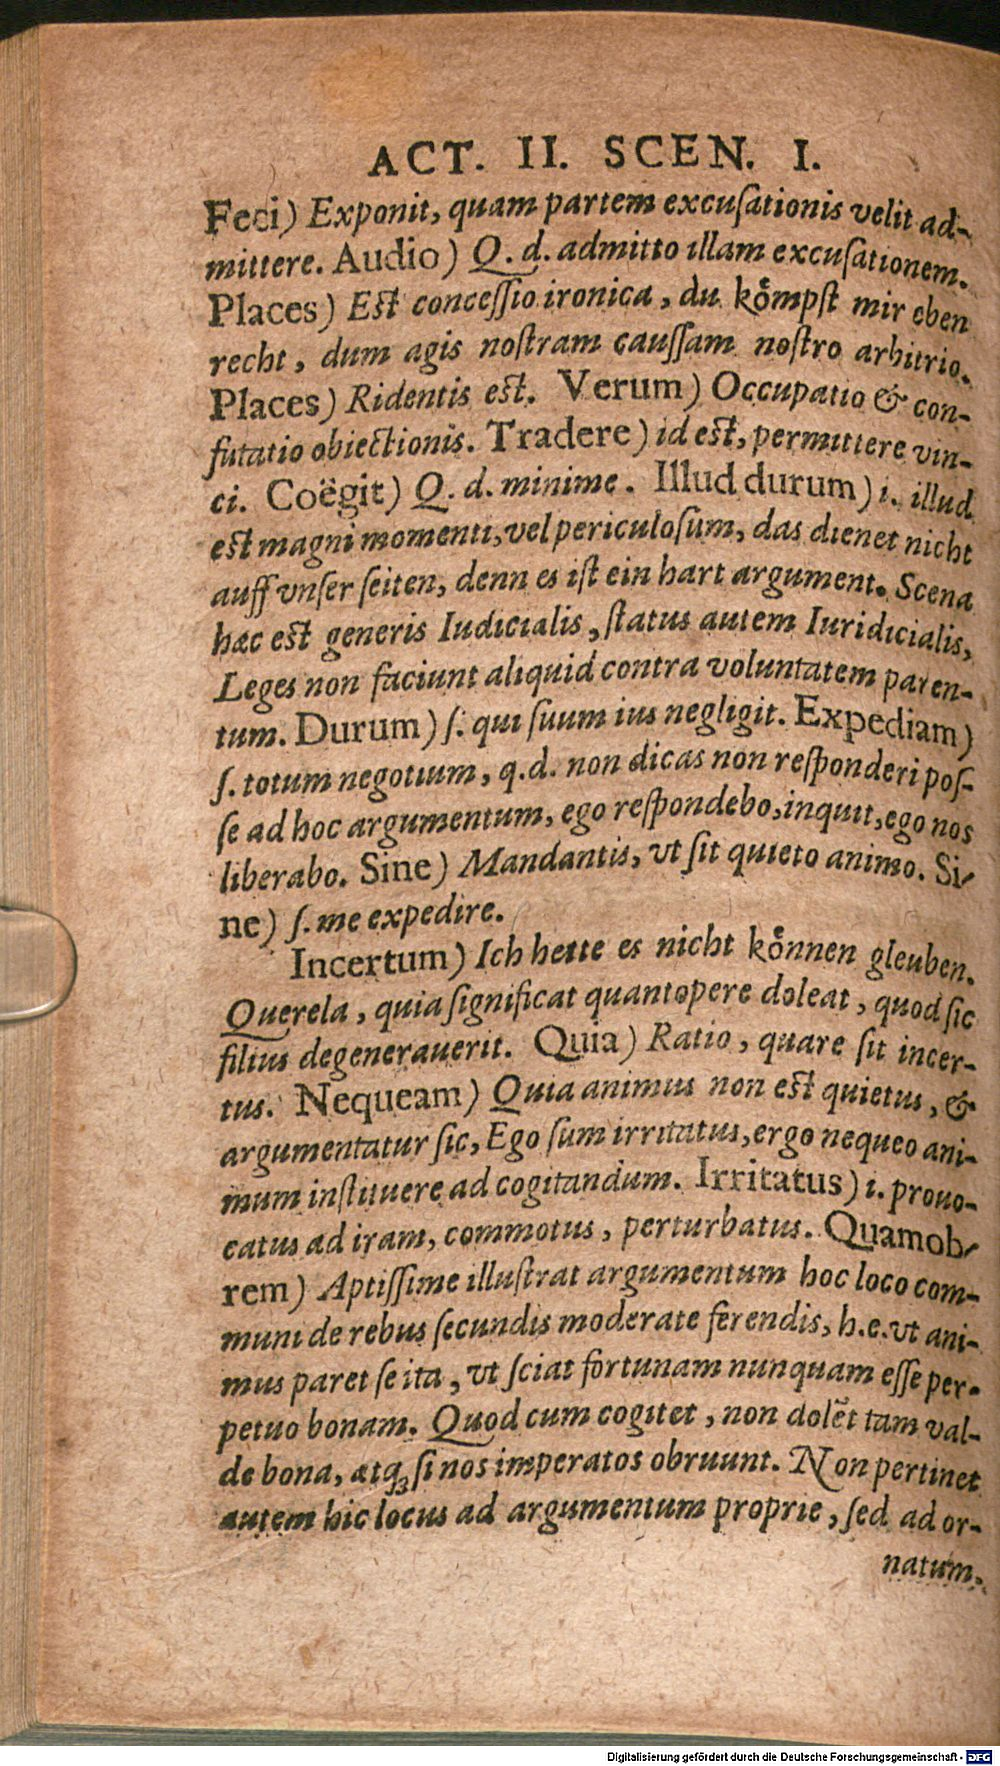 ACT. II. SCEN. I.
Feci) Exponit, quam partem excuſationis velit ad-
mittere. Audio) Q. d. admitto illam excuſationem.
Places) Eſt conceſſio ironica, du koͤmpſt mir eben
recht, dum agis noſtram cauſſam noſtro arbitrio.
Places) Ridentis eſt. Verum) Occupatio & con-
futatio obiectionis. Tradere) id eſt, permittere vin-
ci. Coëgit) Q. d. minime. Illud durum) i. illud
eſt magni momenti, vel periculoſum, das dienet nicht
auff vnſer ſeiten, denn es iſt ein hart argument. Scena
hæc eſt generis Iudicialis, ſtatus autem Iuridicialis,
Leges non faciunt aliquid contra voluntatem paren-
tum. Durum) ſ. qui ſuum ius negligit. Expediam)
ſ. totum negotium, q.d. non dicas non reſponderi poſ-
ſe ad hoc argumentum, ego reſpondebo, inquit, ego nos
liberabo. Sine) Mandantis, vt ſit quieto animo. Si-
ne) ſ. me expedire.
Incertum) Ich hette es nicht koͤnnen gleuben.
Querela, quia ſignificat quantopere doleat, quod ſic
filius degenerauerit. Quia) Ratio, quare ſit incer-
tus. Nequeam) Quia animus non eſt quietus, &
argumentatur ſic, Ego ſum irritatus, ergo nequeo ani-
mum inſtituere ad cogitandum. Irritatus) i. prouo-
catus ad iram, commotus, perturbatus. Quamob-
rem) Aptiſſime illuſtrat argumentum hoc loco com-
muni de rebus ſecundis moderate ferendis, h.e. vt ani-
mus paret ſe ita, vt ſciat fortunam nunquam eſſe per-
petuo bonam. Quod cum cogitet, non dolēt tam val-
de bona, atq; ſi nos imperatos obruunt. Non pertinet
autem hic locus ad argumentum proprie, ſed ad or-
natum.
Digitalisierung gefördert durch die Deutsche Forschungsgemeinschaft - DFG